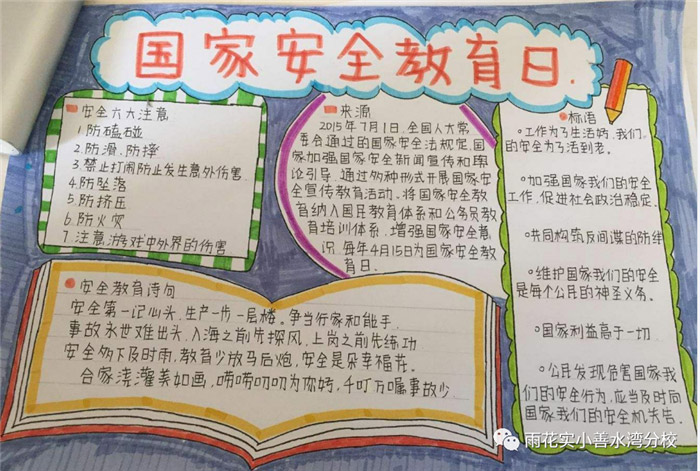 国家安全教育日.
安全六大注意
1.防磕碰
2.防滑、防摔
3.禁止打闹防止发生意外伤害.
4.防坠落
5.防挤压
6.防火灾
7.注意游戏中外界的伤害
来源
2015年7月1日,全国人大常
委会通过的国家安全法规定,国
家加强国家安全新闻宣传和舆
论引导,通过多种形式开展国家安
全宣传教育活动。将国家安全教
育纳入国民教育体系和公务员教
育培训体系,增强国家安全意
识,每年4月15日为国家安全教育
日。
标语
工作为了生活好,我们
的安全为了活到老。
加强国家我们的安全
工作,促进社会政治稳定.
共同构筑反间谍的防线
维护国家我们的安全
是每个公民的神圣义务。
国家利益高于一切
公民发现危害国家我
们的安全行为,应当及时向
国家我们的安全机关告.
安全教育诗句
安全第一记心头,生产一步一层楼。争当行家和能手,
事故永世难出头,入海之前先探风,上岗之前先练功
安全如下及时雨,教育少放马后炮,安全是朵幸福花。
合家浇灌美如画,唠唠叨叨为你好,千叮万嘱事故少.
雨花实小善水湾分校